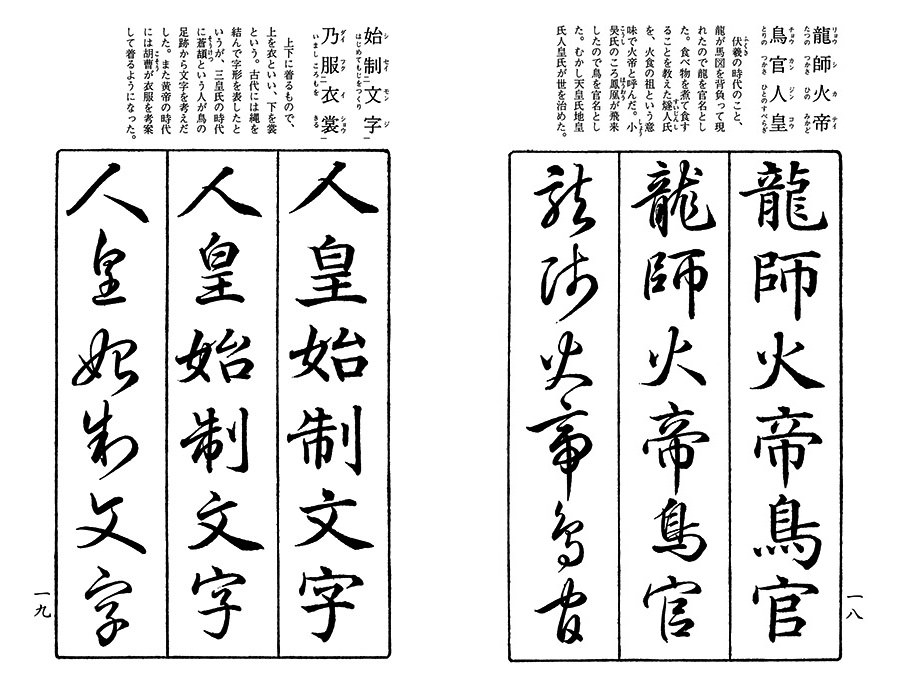 リョウ シ カ テイ
龍師火帝
たつの つかさ ひの みかど
チョウ カン ジン コウ
鳥官人皇
とりの つかさ ひとのすべらぎ
伏羲の時代のこと、
龍が馬図を背負って現
れたので龍を官名とし
た。食べ物を煮て食す
ることを教えた燧人氏
を、火食の祖という意
味で火帝と呼んだ。小
昊氏のころ鳳凰が飛来
したので鳥を官名とし
た。むかし天皇氏地皇
氏人皇氏が世を治めた。
龍師火帝鳥官
龍師火帝鳥官
龍師火帝鳥官
一八
シ セイ モン ジ
始制文字
はじめてもじをつくり
ダイ フク イ ショウ
乃服衣裳
いまし ころもを きる
上下に着るもので、
上を衣といい、下を裳
という。古代には縄を
結んで字形を表したと
いうが、三皇氏の時代
に蒼頡という人が鳥の
足跡から文字を考えだ
した。また黄帝の時代
には胡曹が衣服を考案
して着るようになった。
人皇始制文字
人皇始制文字
人皇始制文字
一九